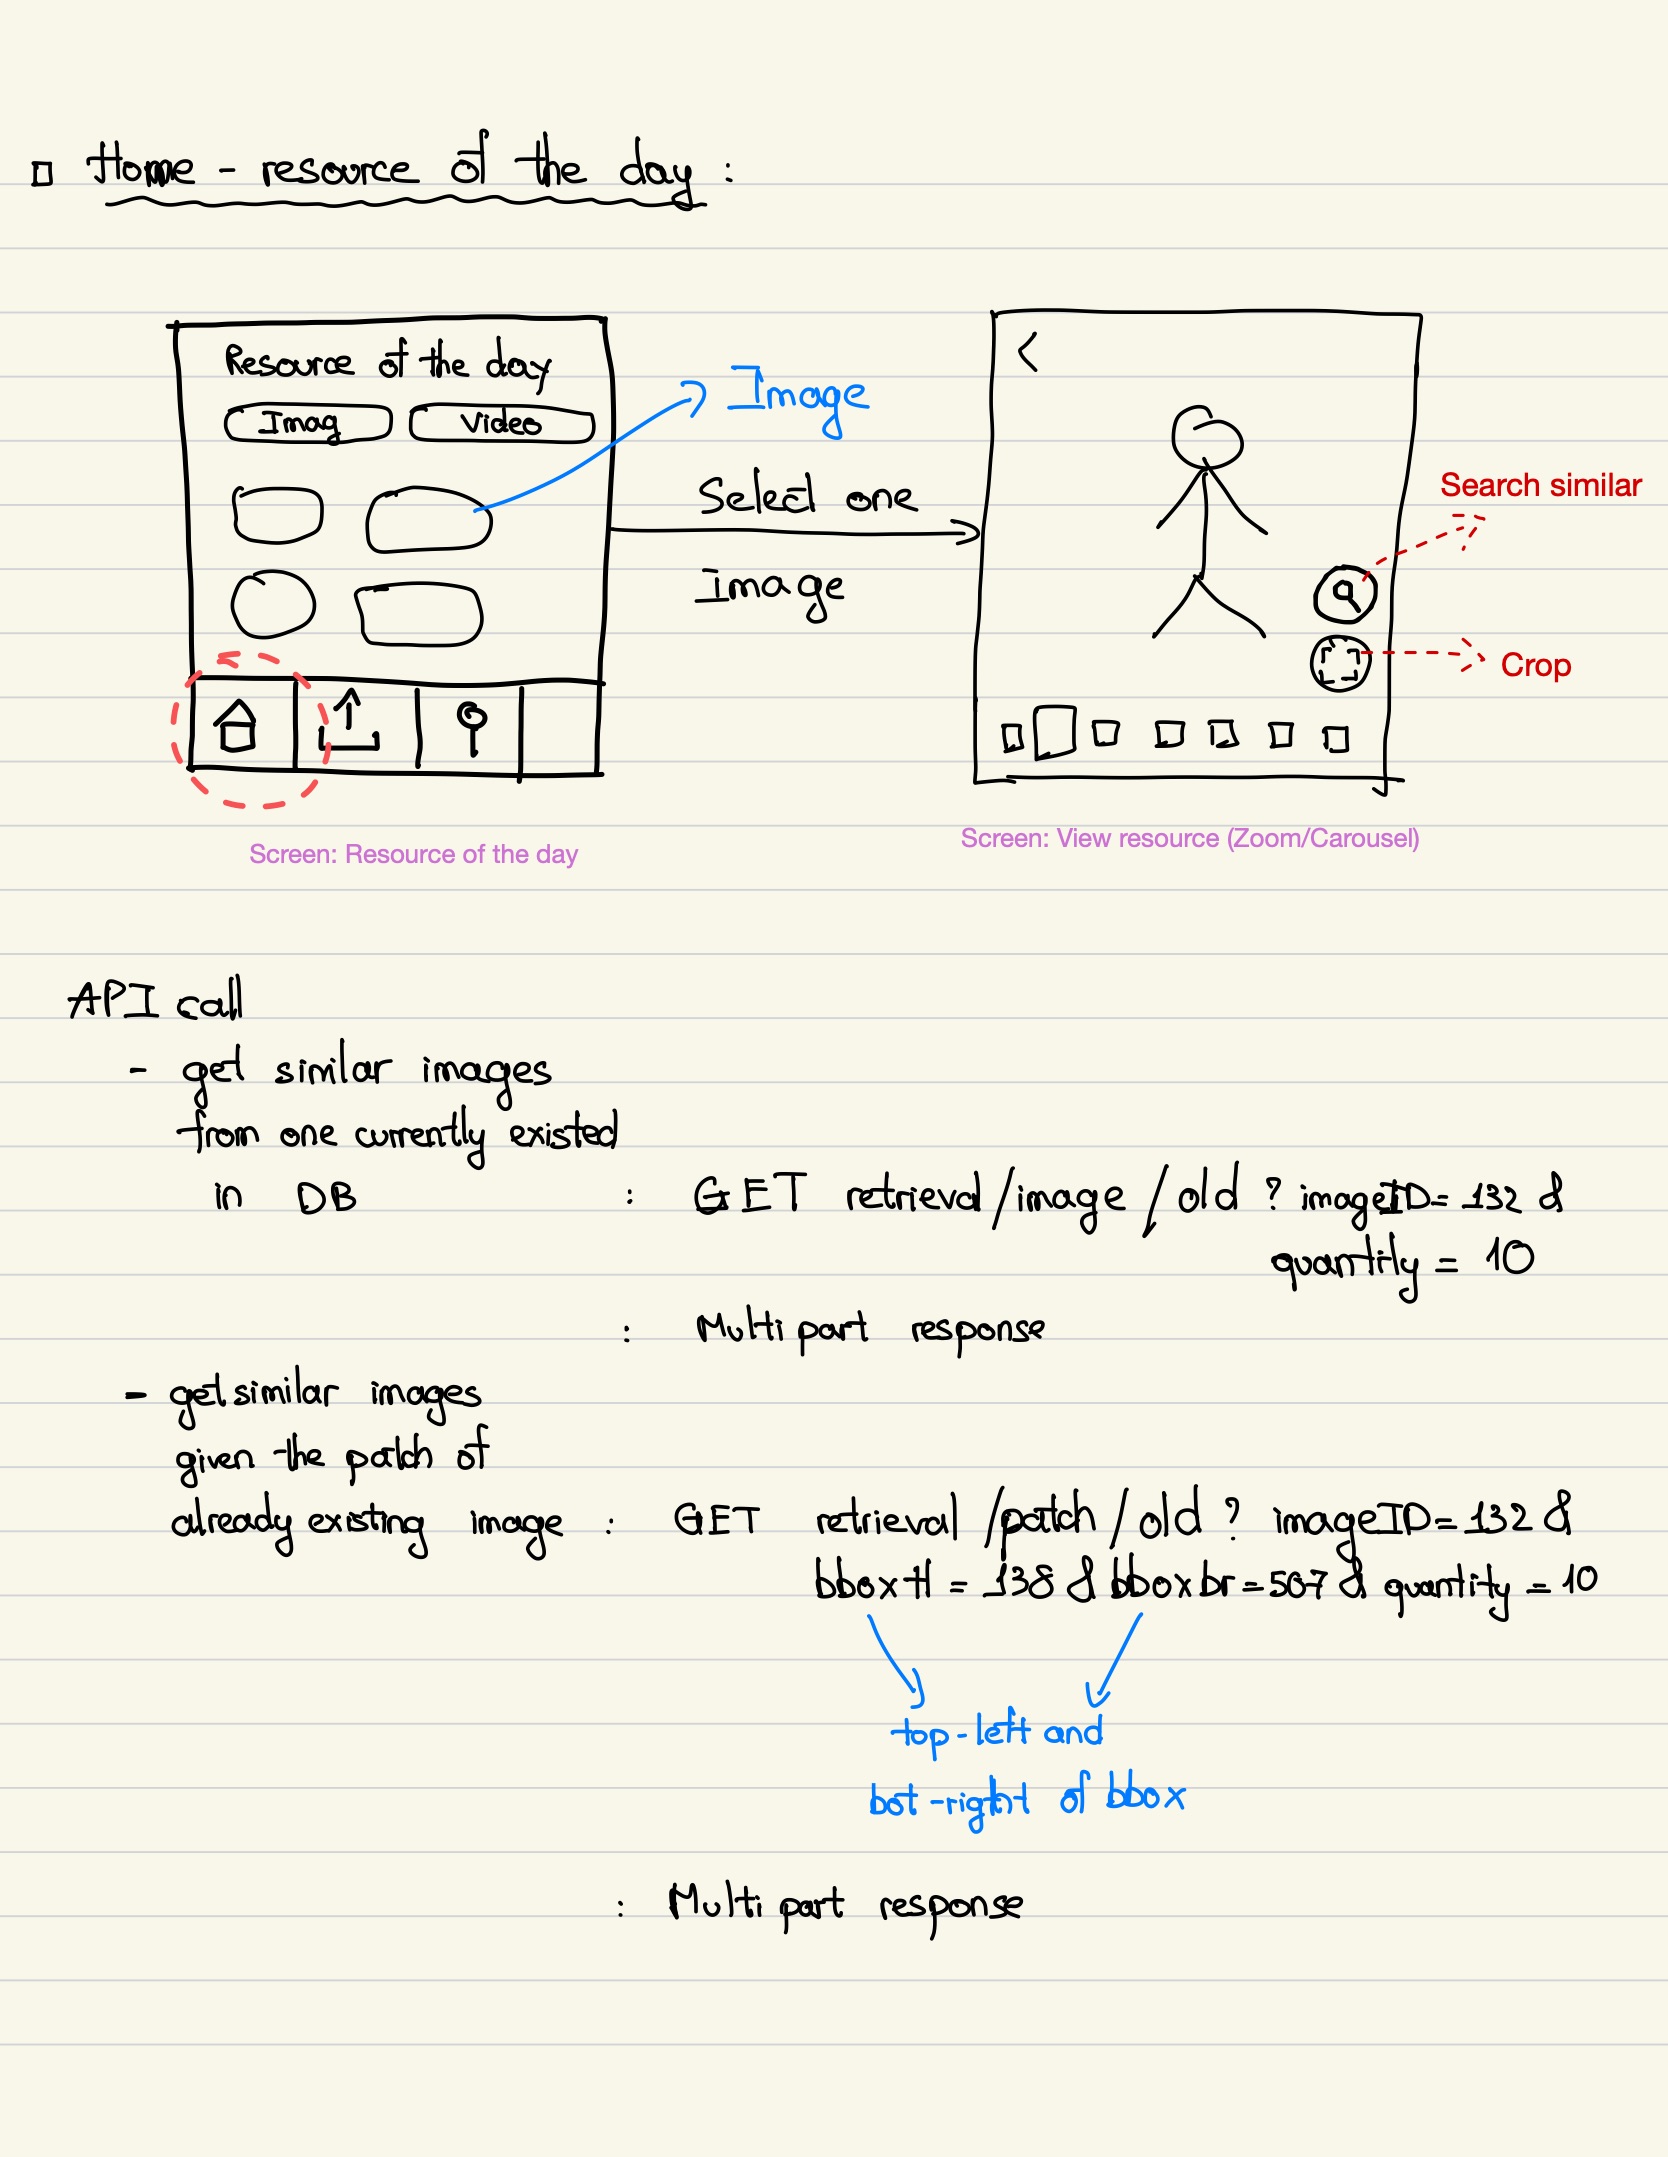 Home - resource of the day :
Resource of the day
Imag
Video
Image
Select one
Image
Search similar
Crop
Screen: Resource of the day
Screen: View resource (Zoom/Carousel)
API call
- get similar images
from one currently existed
in DB : GET retrieval/image/old ? imageID=132 &
quantity = 10
: Multi part response
- get similar images
given the patch of
already existing image : GET retrieval/patch/old ? imageID=132 &
bboxtl = 138 & bboxbr=507 & quantity = 10
top-left and
bot-right of bbox
: Multi part response